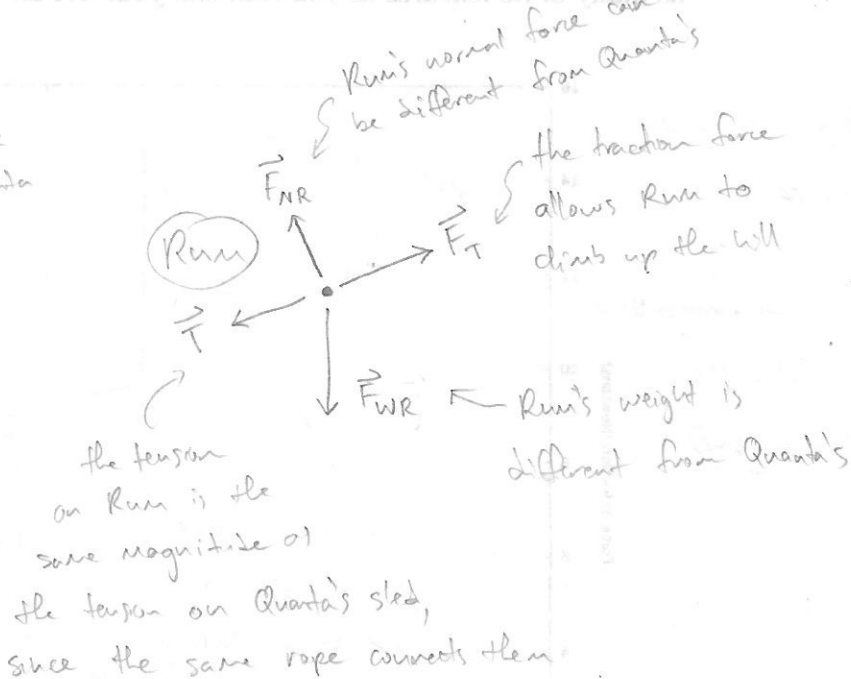 Rum's normal force can
be different from Quanta's
the traction force
allows Rum to
climb up the hill
F_NR
Rum
F_T
T
F_WR
Rum's weight is
different from Quanta's
the tension
on Rum is the
same magnitude of
the tension on Quanta's sled,
since the same rope connects them